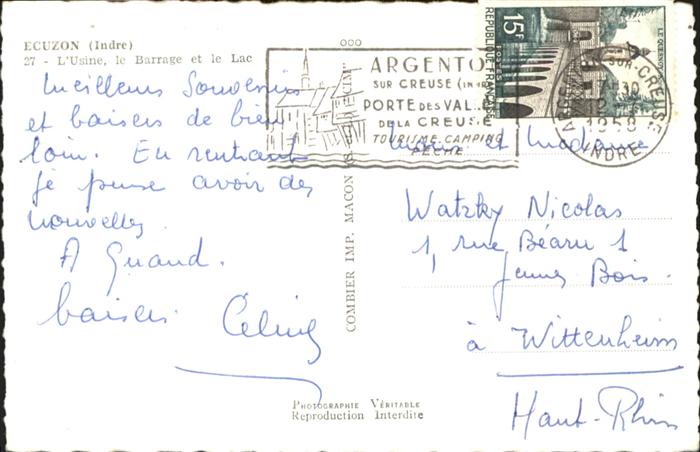 ECUZON (Indre)
27 - L'Usine, le Barrage et le Lac
Meilleurs Souvenirs
et baisers de bien
loin. En rentrant
je pense avoir des
nouvelles.
A Quand.
baisers Céline
COMBIER IMP. MACON
PHOTOGRAPHIE VÉRITABLE
Reproduction Interdite
ARGENTON
SUR CREUSE (INDRE)
PORTE DES VAL
DE LA CREUSE
TOURISME-CAMPING
PÊCHE
15F
REPUBLIQUE FRANÇAISE
POSTES
LE QUESNOY
ARGENTON-SUR-CREUSE
1958
INDRE
et Madame
Watzky Nicolas
1, rue Béarn 1
Jeunes Bois.
à Wittenheim
Haut-Rhin